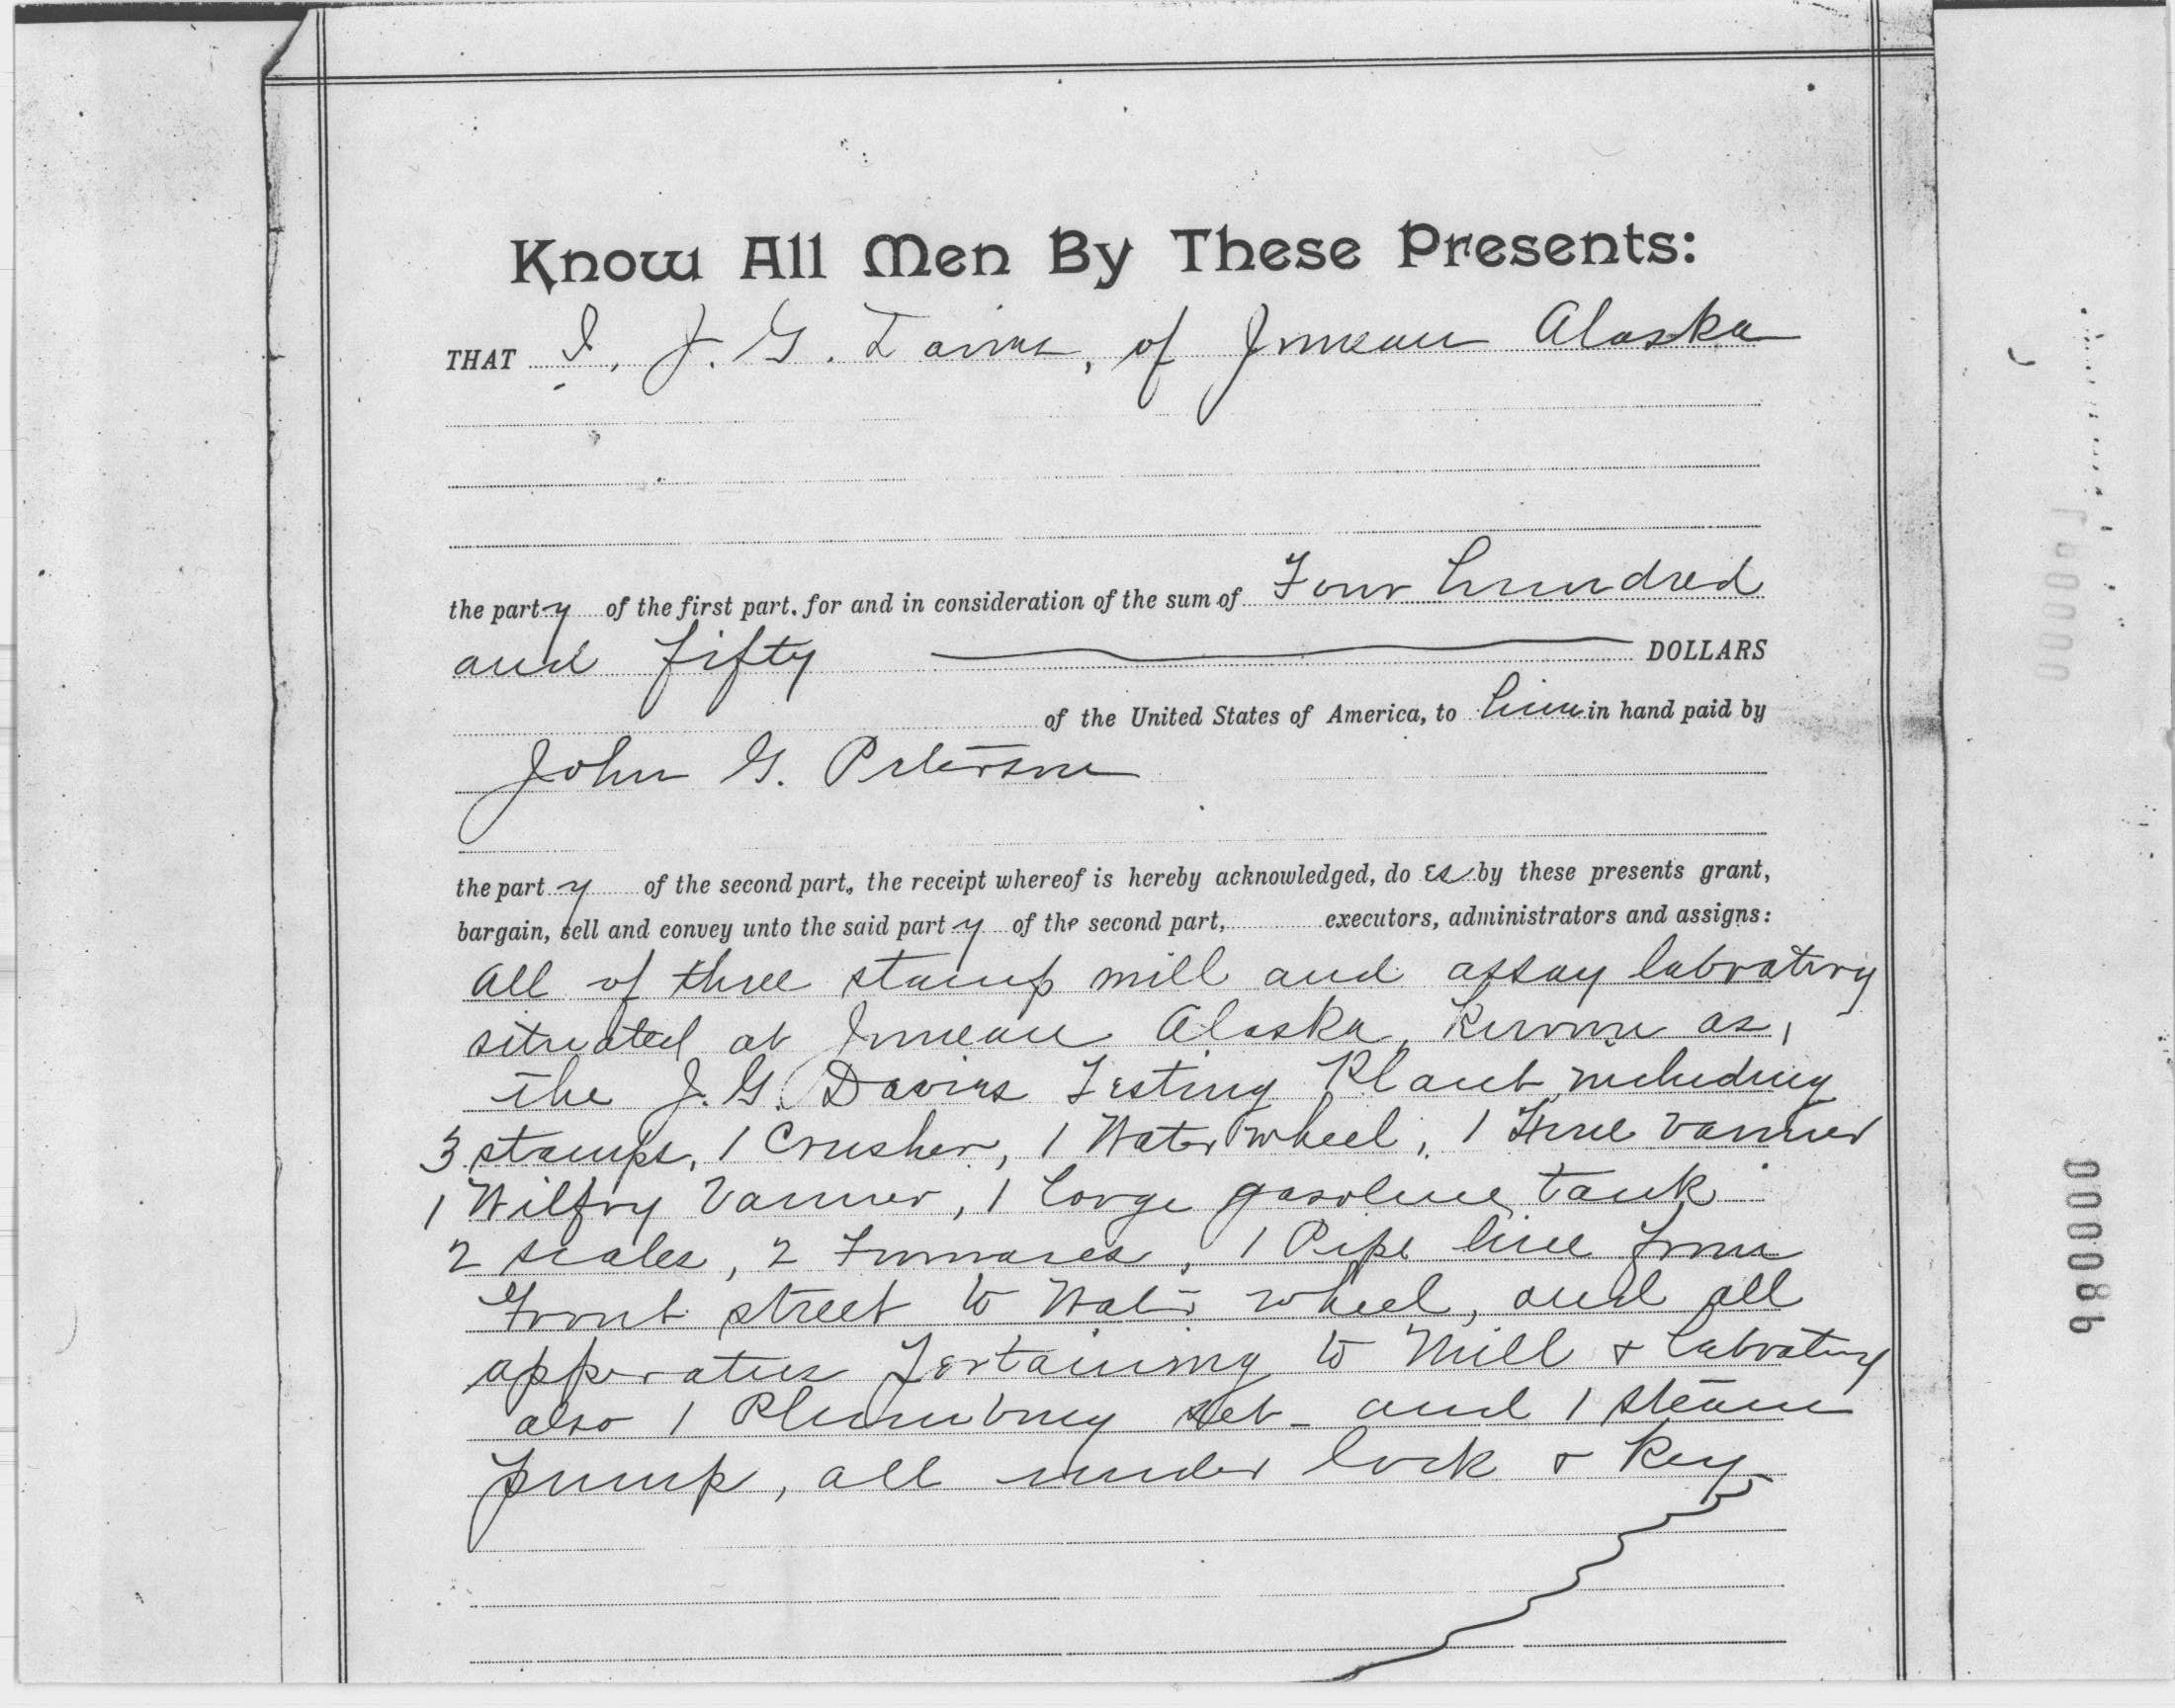 Know All Men By These Presents:
THAT I, J. G. Davies, of Juneau Alaska
the party of the first part, for and in consideration of the sum of Four hundred
and fifty DOLLARS
of the United States of America, to him in hand paid by
John G. Peterson
the party of the second part, the receipt whereof is hereby acknowledged, do es by these presents grant,
bargain, sell and convey unto the said party of the second part, executors, administrators and assigns:
All of three stamp mill and assay labratory
situated at Juneau Alaska, known as,
the J. G. Davies Testing Plant, including
3 stamps, 1 Crusher, 1 Water wheel, 1 Frue Vanner
1 Wilfry Vanner, 1 large gasoline tank
2 scales, 2 Furnaces, 1 Pipe line from
Front street to Water wheel, and all
apperatus pertaining to Mill & Labratory
also 1 Plumbing set - and 1 steam
pump, all under lock & key
000086